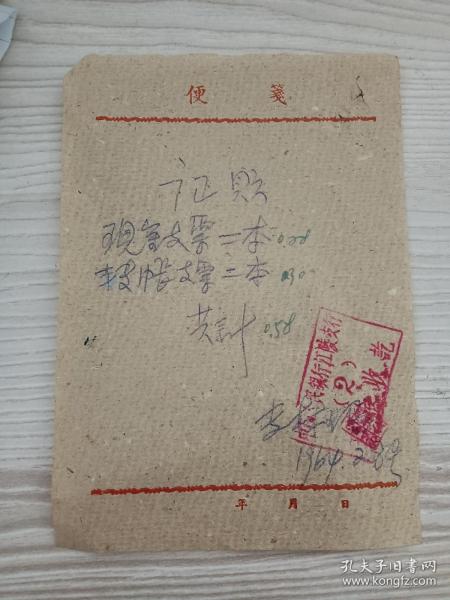 便 箋
证明
现金支票一本 0.28
转帐支票二本 0.30
共计 0.58
民银行江陵支行
(2)
收讫
1964.2.8号
年 月 日
孔夫子旧书网
www.kongfz.com